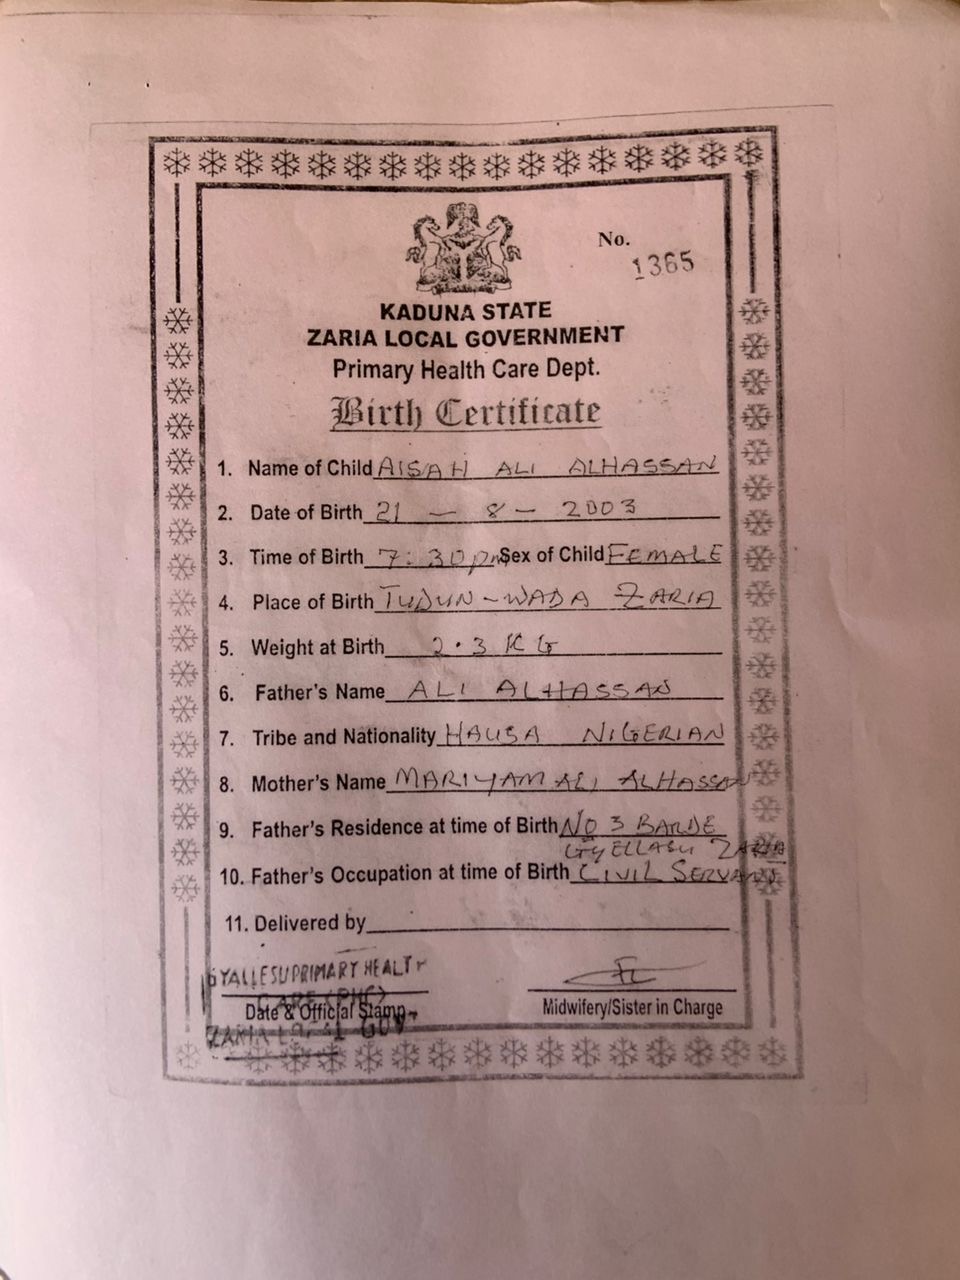 No.
1365
KADUNA STATE
ZARIA LOCAL GOVERNMENT
Primary Health Care Dept.
Birth Certificate
1. Name of Child AISAH ALI ALHASSAN
2. Date of Birth 21 - 8 - 2003
3. Time of Birth 7:30pm Sex of Child FEMALE
4. Place of Birth TUDUN-WADA ZARIA
5. Weight at Birth 2.3 KG
6. Father's Name ALI ALHASSAN
7. Tribe and Nationality HAUSA NIGERIAN
8. Mother's Name MARIYAM ALI ALHASSAN
9. Father's Residence at time of Birth NO 3 BARDE
GYELLASU ZARIA
10. Father's Occupation at time of Birth CIVIL SERVANT
11. Delivered by
GYALLESU PRIMARY HEALTH
CARE (PHC)
Date & Official Stamp
Midwifery/Sister in Charge
ZARIA LOCAL GOV